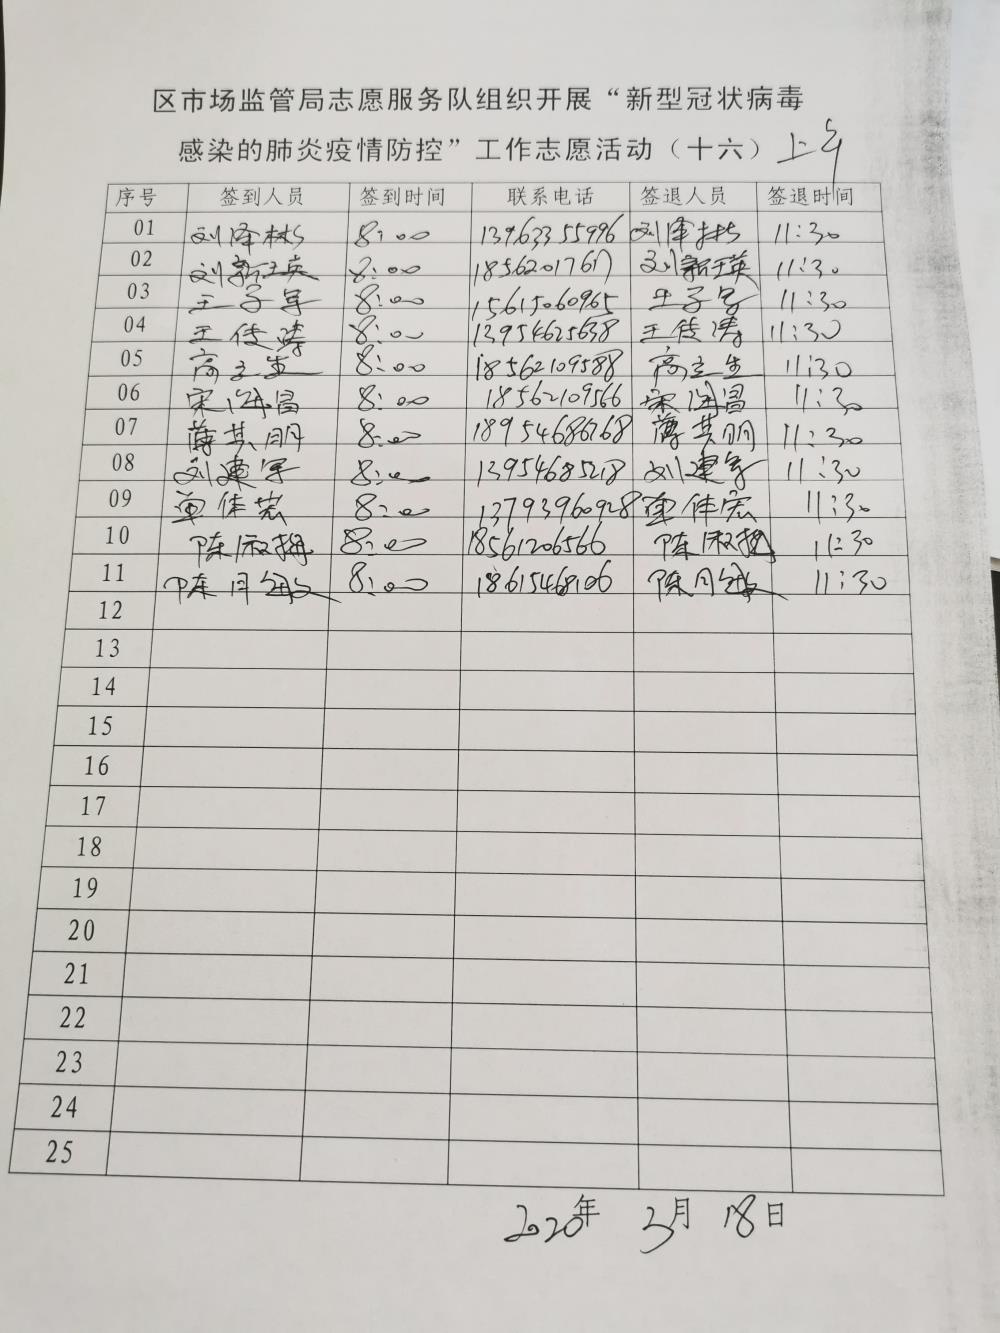 区市场监管局志愿服务队组织开展“新型冠状病毒
感染的肺炎疫情防控”工作志愿活动（十六）上午
序号 签到人员 签到时间 联系电话 签退人员 签退时间
01 刘泽彬 8:00 13963355996 刘泽彬 11:30
02 刘新英 8:00 18562017617 刘新英 11:30
03 王子军 8:00 15615060965 王子军 11:30
04 王传涛 8:00 13954625638 王传涛 11:30
05 高立生 8:00 18562109588 高立生 11:30
06 宋海昌 8:00 18562109566 宋海昌 11:30
07 薄其朋 8:00 18954686768 薄其朋 11:30
08 刘建军 8:00 13954685218 刘建军 11:30
09 单伟宏 8:00 13793960928 单伟宏 11:30
10 陈淑梅 8:00 18561206566 陈淑梅 11:30
11 陈月敏 8:00 18615468106 陈月敏 11:30
12
13
14
15
16
17
18
19
20
21
22
23
24
25
2020年 3月 18日